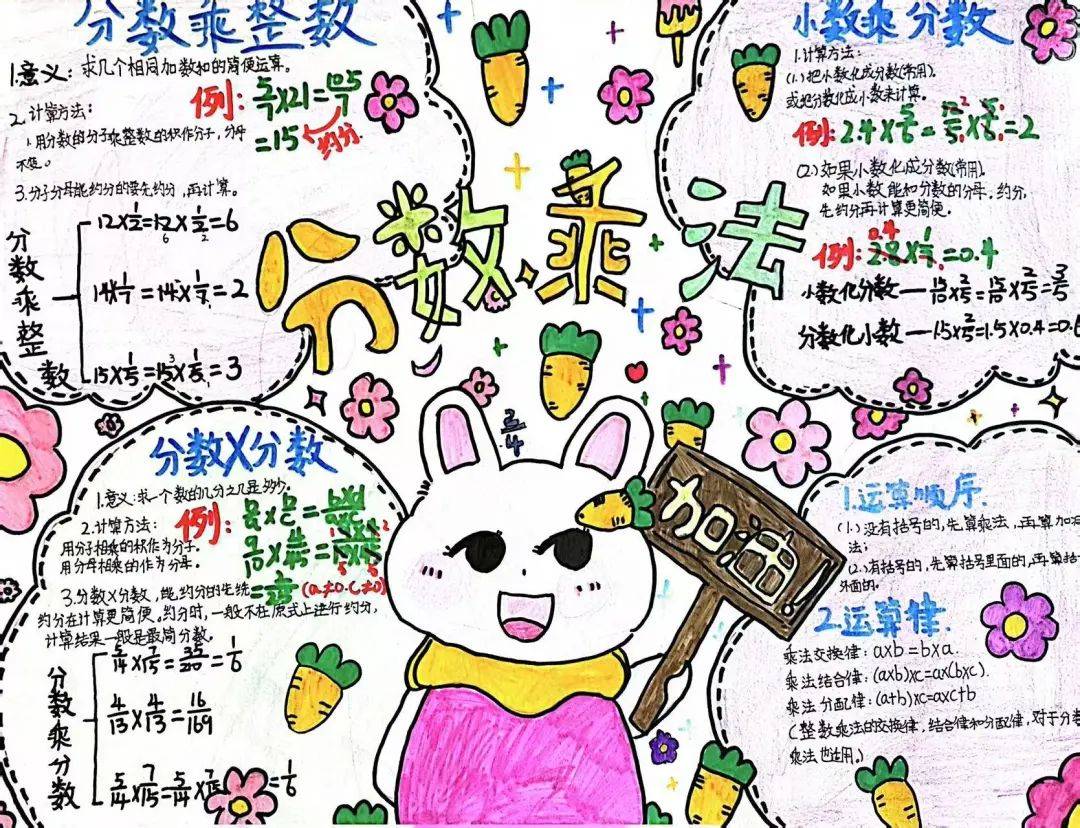 分数乘整数
1.意义：求几个相同加数和的简便运算。
2.计算方法：
1.用分数的分子乘整数的积作分子，分母
不变。
例：5/7×21=105/7
=15 约分
3.分子分母能约分的要先约分，再计算。
分数乘整数
12×1/2=12×1/2=6
14×1/7=14×1/7=2
15×1/5=15×1/5=3
分数乘法
小数乘分数
1.计算方法：
(1.)把小数化成分数(常用).
或把分数化成小数来计算。
例：2.4×5/6=12/5×5/6=2
(2.)如果小数化成分数(常用).
如果小数能和分数的分母，约分，
先约分再计算更简便。
例：2.8×1/7=0.4
小数化分数—15/10×2/5=15/10×2/5=3/5
分数化小数—1.5×2/5=1.5×0.4=0.6
分数X分数
1.意义：求一个数的几分之几是多少。
2.计算方法：
用分子相乘的积作为分子。
用分母相乘的作为分母。
例：
(a≠0.c≠0)
3.分数X分数，能约分的先
约分在计算更简便，约分时，一般不在原式上进行约分，
计算结果一般是最简分数。
分数乘分数
5/14×7/15=35/20=1/6
4/13×4/13=16/169
5/14×7/15=5/14×7/15=1/6
3/4
加油
1.运算顺序.
(1.)没有括号的，先算乘法，再算加减
法；
(2.)有括号的，先算括号里面的，再算括
外面的.
2.运算律.
乘法交换律：a×b=b×a.
乘法结合律：(a×b)×c=a×(b×c).
乘法分配律：(a+b)×c=a×c+b
(整数乘法的交换律，结合律和分配律，对于分数
乘法也适用.)